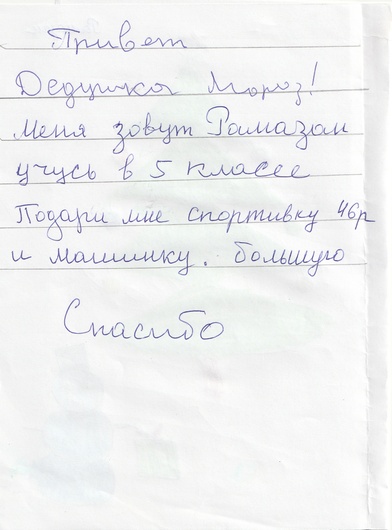 Привет
Дедушка Мороз!
меня зовут Рамазан
учусь в 5 классе
Подари мне спортивку 46р
и машинку. большую
Спасибо